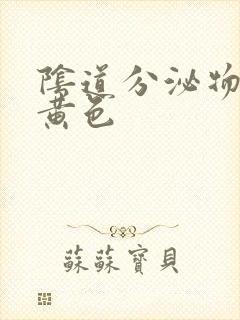 陰道分泌物
黃色
蘇蘇寶貝